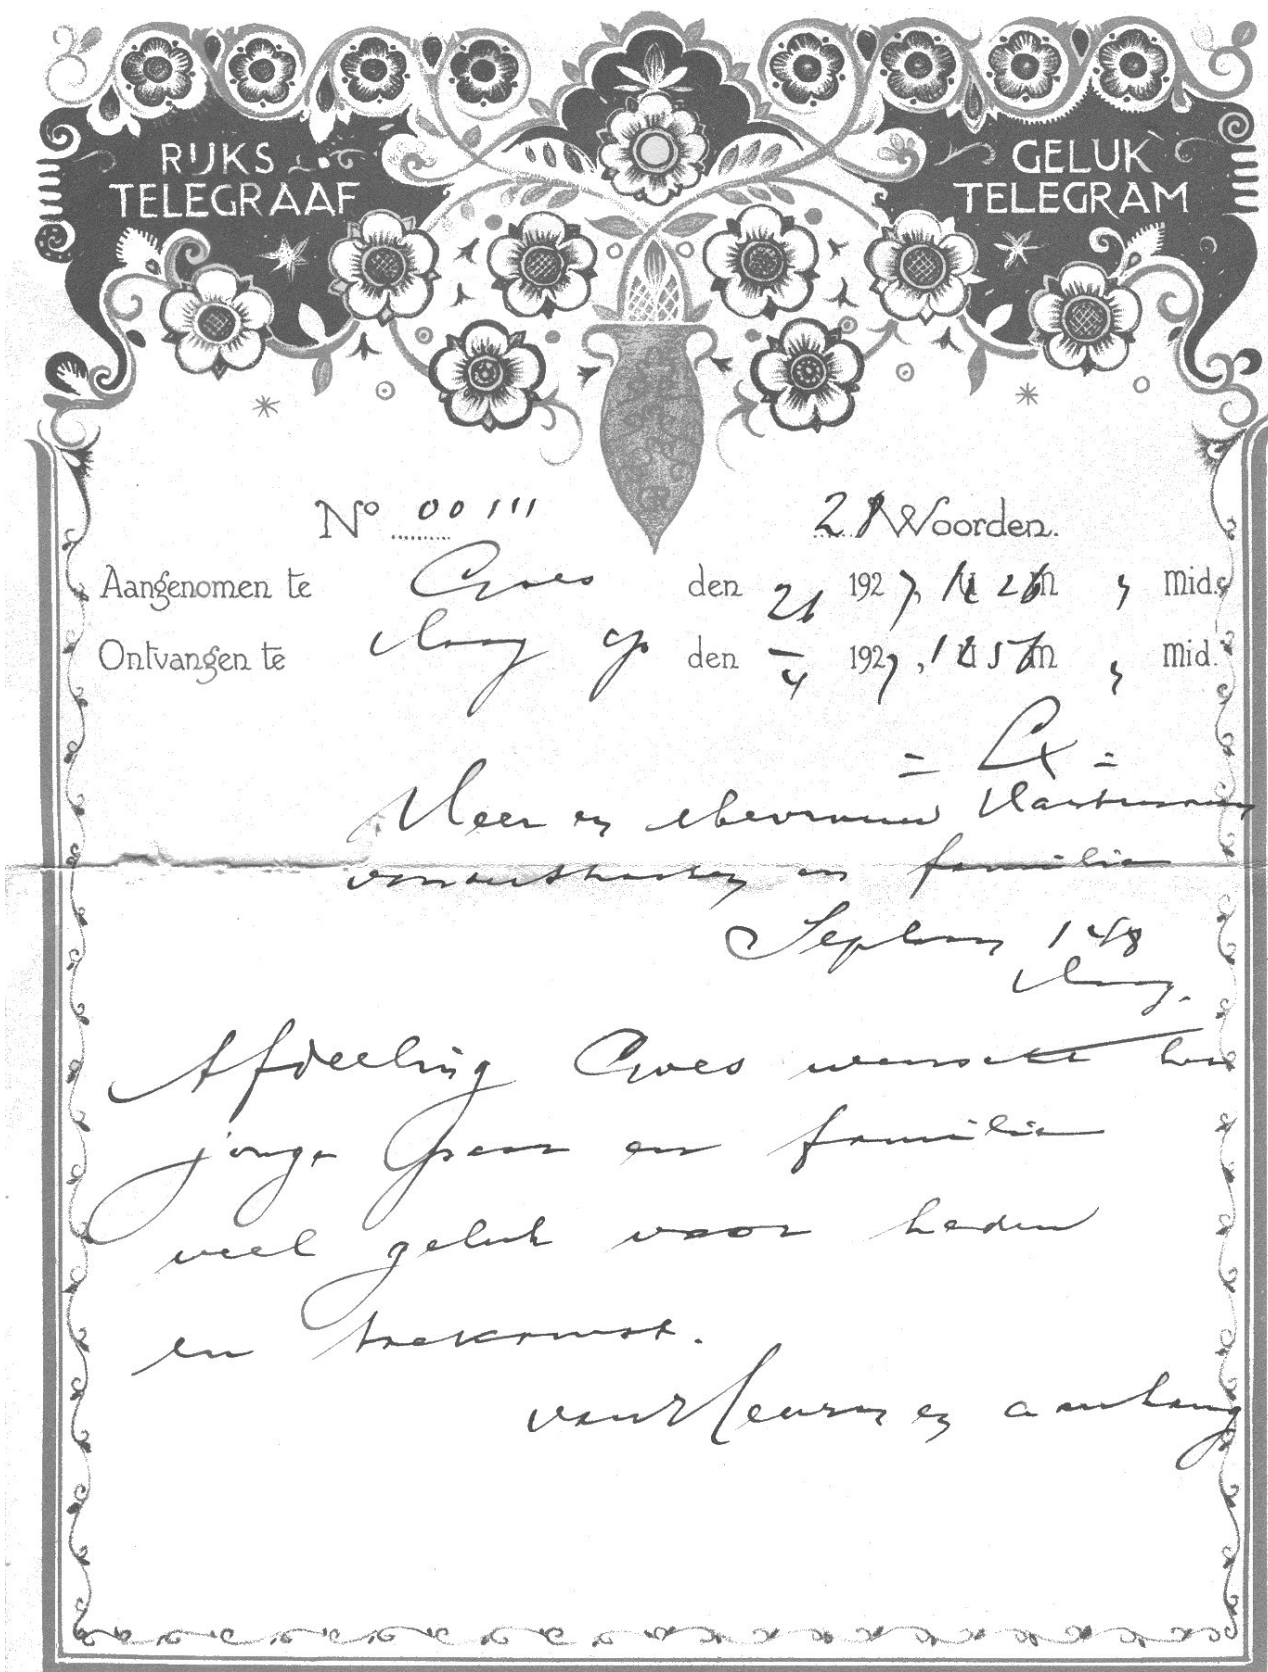 RIJKS
TELEGRAAF
GELUK
TELEGRAM
No 00111 Woorden.
Aangenomen te Goes den 21 1927, M Mid.
Ontvangen te Haag den 4 1927, M Mid.
= LX =
Heer en Mevrouw
en familie
148
Haag.
Afdeeling Goes wenscht het
jonge paar en familie
veel geluk voor heden
en toekomst.
van Heuven en aanhang